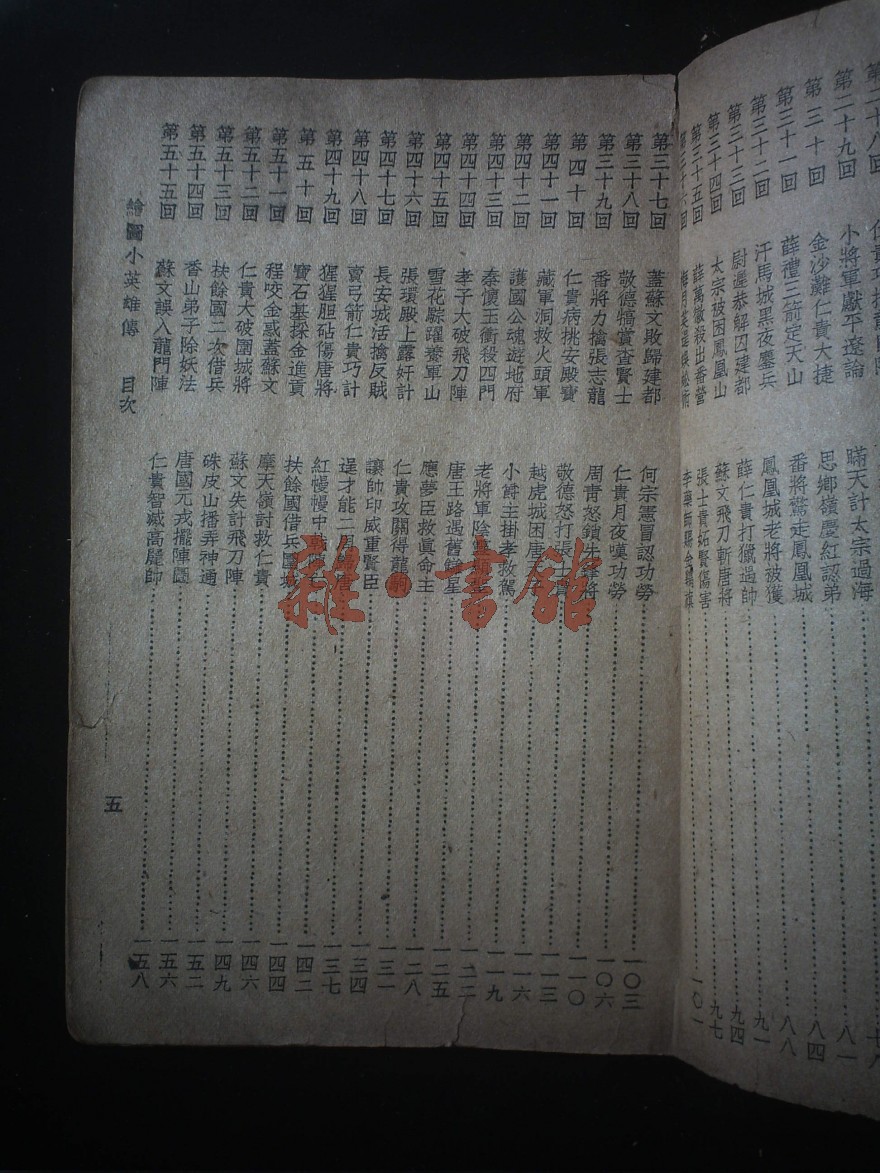 第二十九回 小將軍獻平遼論 瞞天計太宗過海 八一
第三十回 金沙灘仁貴大捷 思鄉嶺慶紅認弟 八四
第三十一回 薛禮三箭定天山 番將驚走鳳凰城 八八
第三十二回 汗馬城黑夜鏖兵 鳳凰城老將被獲 九一
第三十三回 尉遲恭解囚建都 薛仁貴打獵過帥 九四
第三十四回 太宗被困鳳凰山 蘇文飛刀斬唐將 九七
第三十五回 薛萬徹殺出番營 張士貴妬賢傷害
第三十六回 一〇一
第三十七回 蓋蘇文敗歸建都 何宗憲冒認功勞 一〇三
第三十八回 敬德犒賞查賢士 仁貴月夜嘆功勞 一〇六
第三十九回 番將力擒張志龍 周青怒鎖先鋒將
第四十回 仁貴病挑安殿寶 敬德怒打張士貴 一一〇
第四十一回 藏軍洞救火頭軍 越虎城困唐天子 一一三
第四十二回 護國公魂遊地府 小爵主掛孝救駕 一一六
第四十三回 秦懷玉衝殺四門 老將軍陰 一一九
第四十四回 孝子大破飛刀陣 唐王路遇舊 星 一二二
第四十五回 雪花鬃躍養軍山 應夢臣救眞命主 一二五
第四十六回 張環殿上露奸計 仁貴攻關得龍駒 一二八
第四十七回 長安城活擒反賊 讓帥印威重賢臣 一三一
第四十八回 賣弓箭仁貴巧計 逞才能二周歸唐 一三四
第四十九回 猩猩胆砧傷唐將 紅慢慢中 一三七
第五十回 寶石基採金進貢 扶餘國借兵圍城 一四二
第五十一回 程咬金惑蓋蘇文 摩天嶺討救仁貴 一四四
第五十二回 仁貴大破圍城將 蘇文失計飛刀陣 一四六
第五十三回 扶餘國二次借兵 硃皮山播弄神通 一四九
第五十四回 香山弟子除妖法 唐國元戎擺陣圖 一五二
第五十五回 蘇文誤入龍門陣 仁貴智滅高麗帥 一五六
一五八
繪圖小英雄傳 目次 五
雜·書館